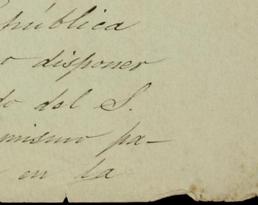 República
o disponer
do del S.
mismo pa-
en la